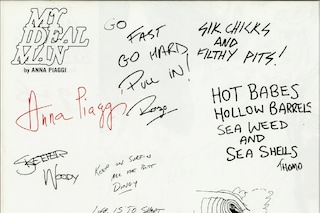 MY
IDEAL
MAN
by ANNA PIAGGI
Anna Piaggi
GO
FAST
GO HARD,
PULL IN!
SIK CHICKS
AND
FILTHY PITS!
HOT BABES
HOLLOW BARRELS
SEA WEED
AND
SEA SHELLS
THOMO
WOODY
KEEP ON SURFIN
DINGY
LIFE IS TO SHORT